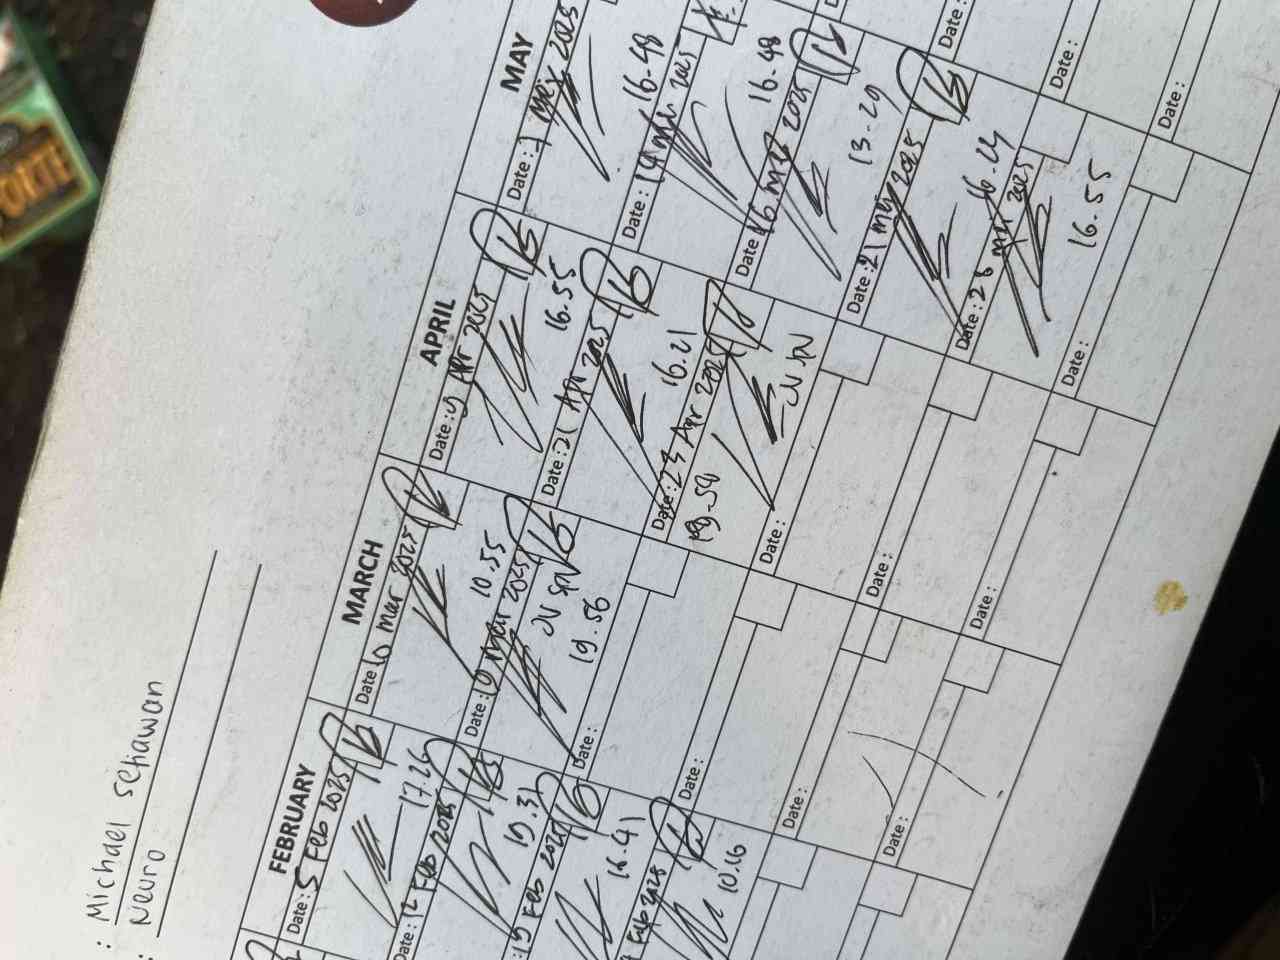 : Michael Setiawan
: Neuro
FEBRUARY
Date: 5 Feb 2025
17.26
Date: 12 Feb 2025
19.31
: 19 Feb 2025
16.41
Feb 2025
10.16
MARCH
Date 10 Mar 2025
10.55
Date: Mar 2025
JV SPV
19.56
Date:
Date:
Date:
Date:
APRIL
Date: 9 Apr 2025
16.55
Date: 21 Apr 2025
16.21
Date: 23 Apr 2025
19.54
JV SPV
Date:
Date:
Date:
MAY
Date: 7 Mei 2025
16.48
Date: 14 Mei 2025
16.48
Date 16 Mei 2025
13.29
Date: 21 Mei 2025
16.24
Date: 28 Mei 2025
16.55
Date:
Date:
Date:
Date: